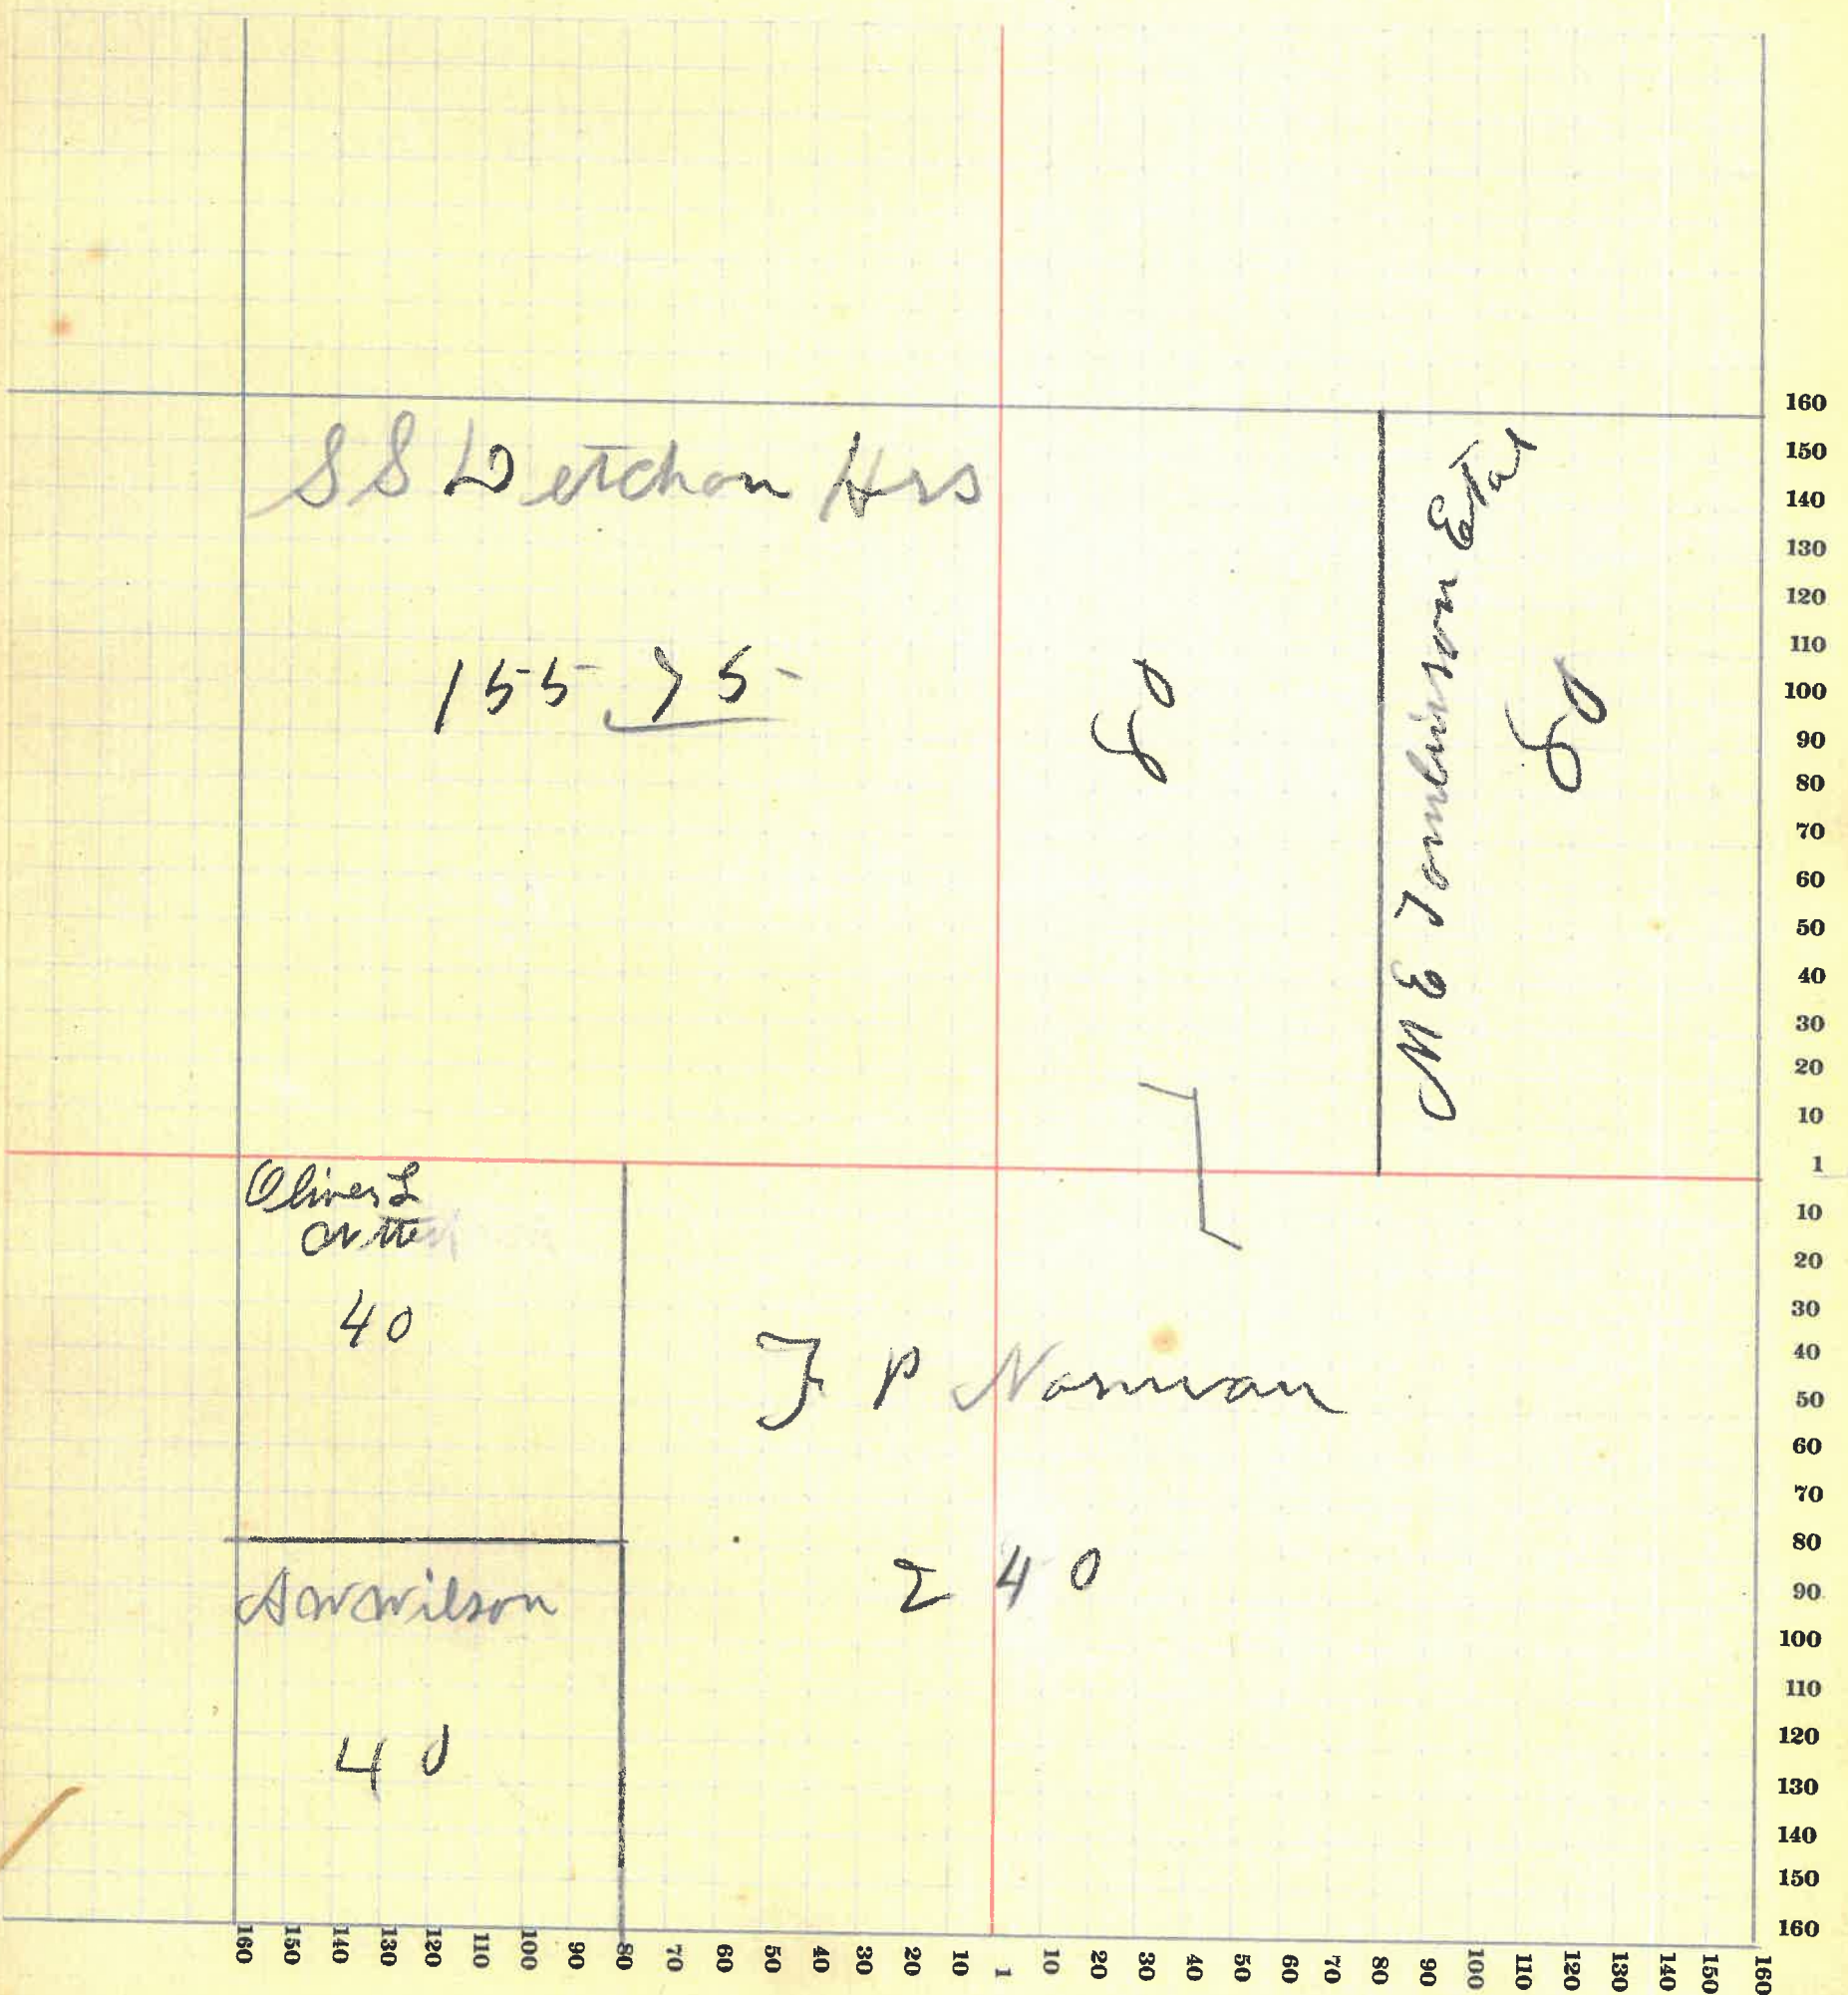 S S Detchon Hrs
155 75
80
M E Tomlinson Etal
80
Oliver L
40
F P Norman
240
A W Wilson
40
160
150
140
130
120
110
100
90
80
70
60
50
40
30
20
10
1
10
20
30
40
50
60
70
80
90
100
110
120
130
140
150
160
160 150 140 130 120 110 100 90 80 70 60 50 40 30 20 10 1 10 20 30 40 50 60 70 80 90 100 110 120 130 140 150 160